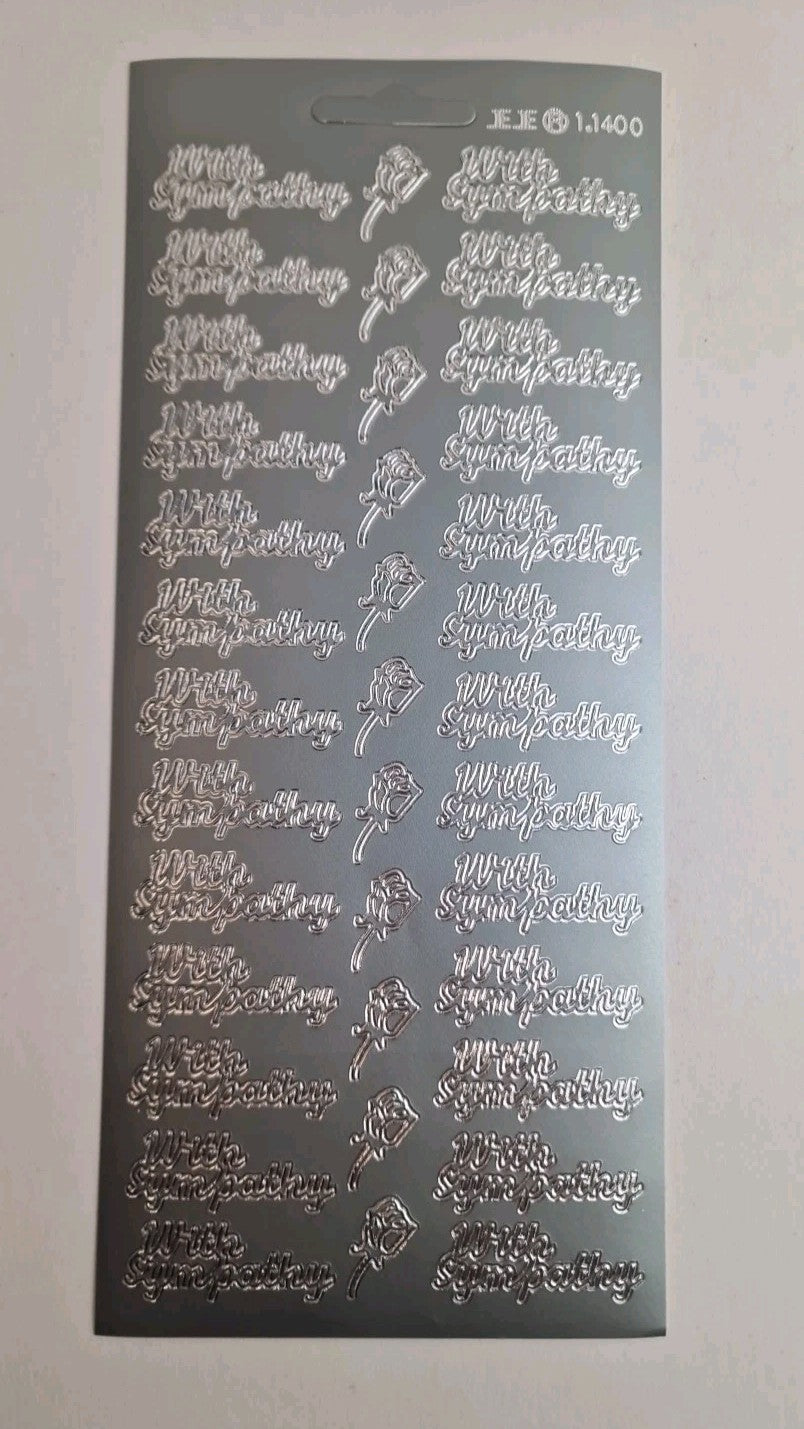 JEJE ® 1.1400
With
Sympathy
With
Sympathy
With
Sympathy
With
Sympathy
With
Sympathy
With
Sympathy
With
Sympathy
With
Sympathy
With
Sympathy
With
Sympathy
With
Sympathy
With
Sympathy
With
Sympathy
With
Sympathy
With
Sympathy
With
Sympathy
With
Sympathy
With
Sympathy
With
Sympathy
With
Sympathy
With
Sympathy
With
Sympathy
With
Sympathy
With
Sympathy
With
Sympathy
With
Sympathy